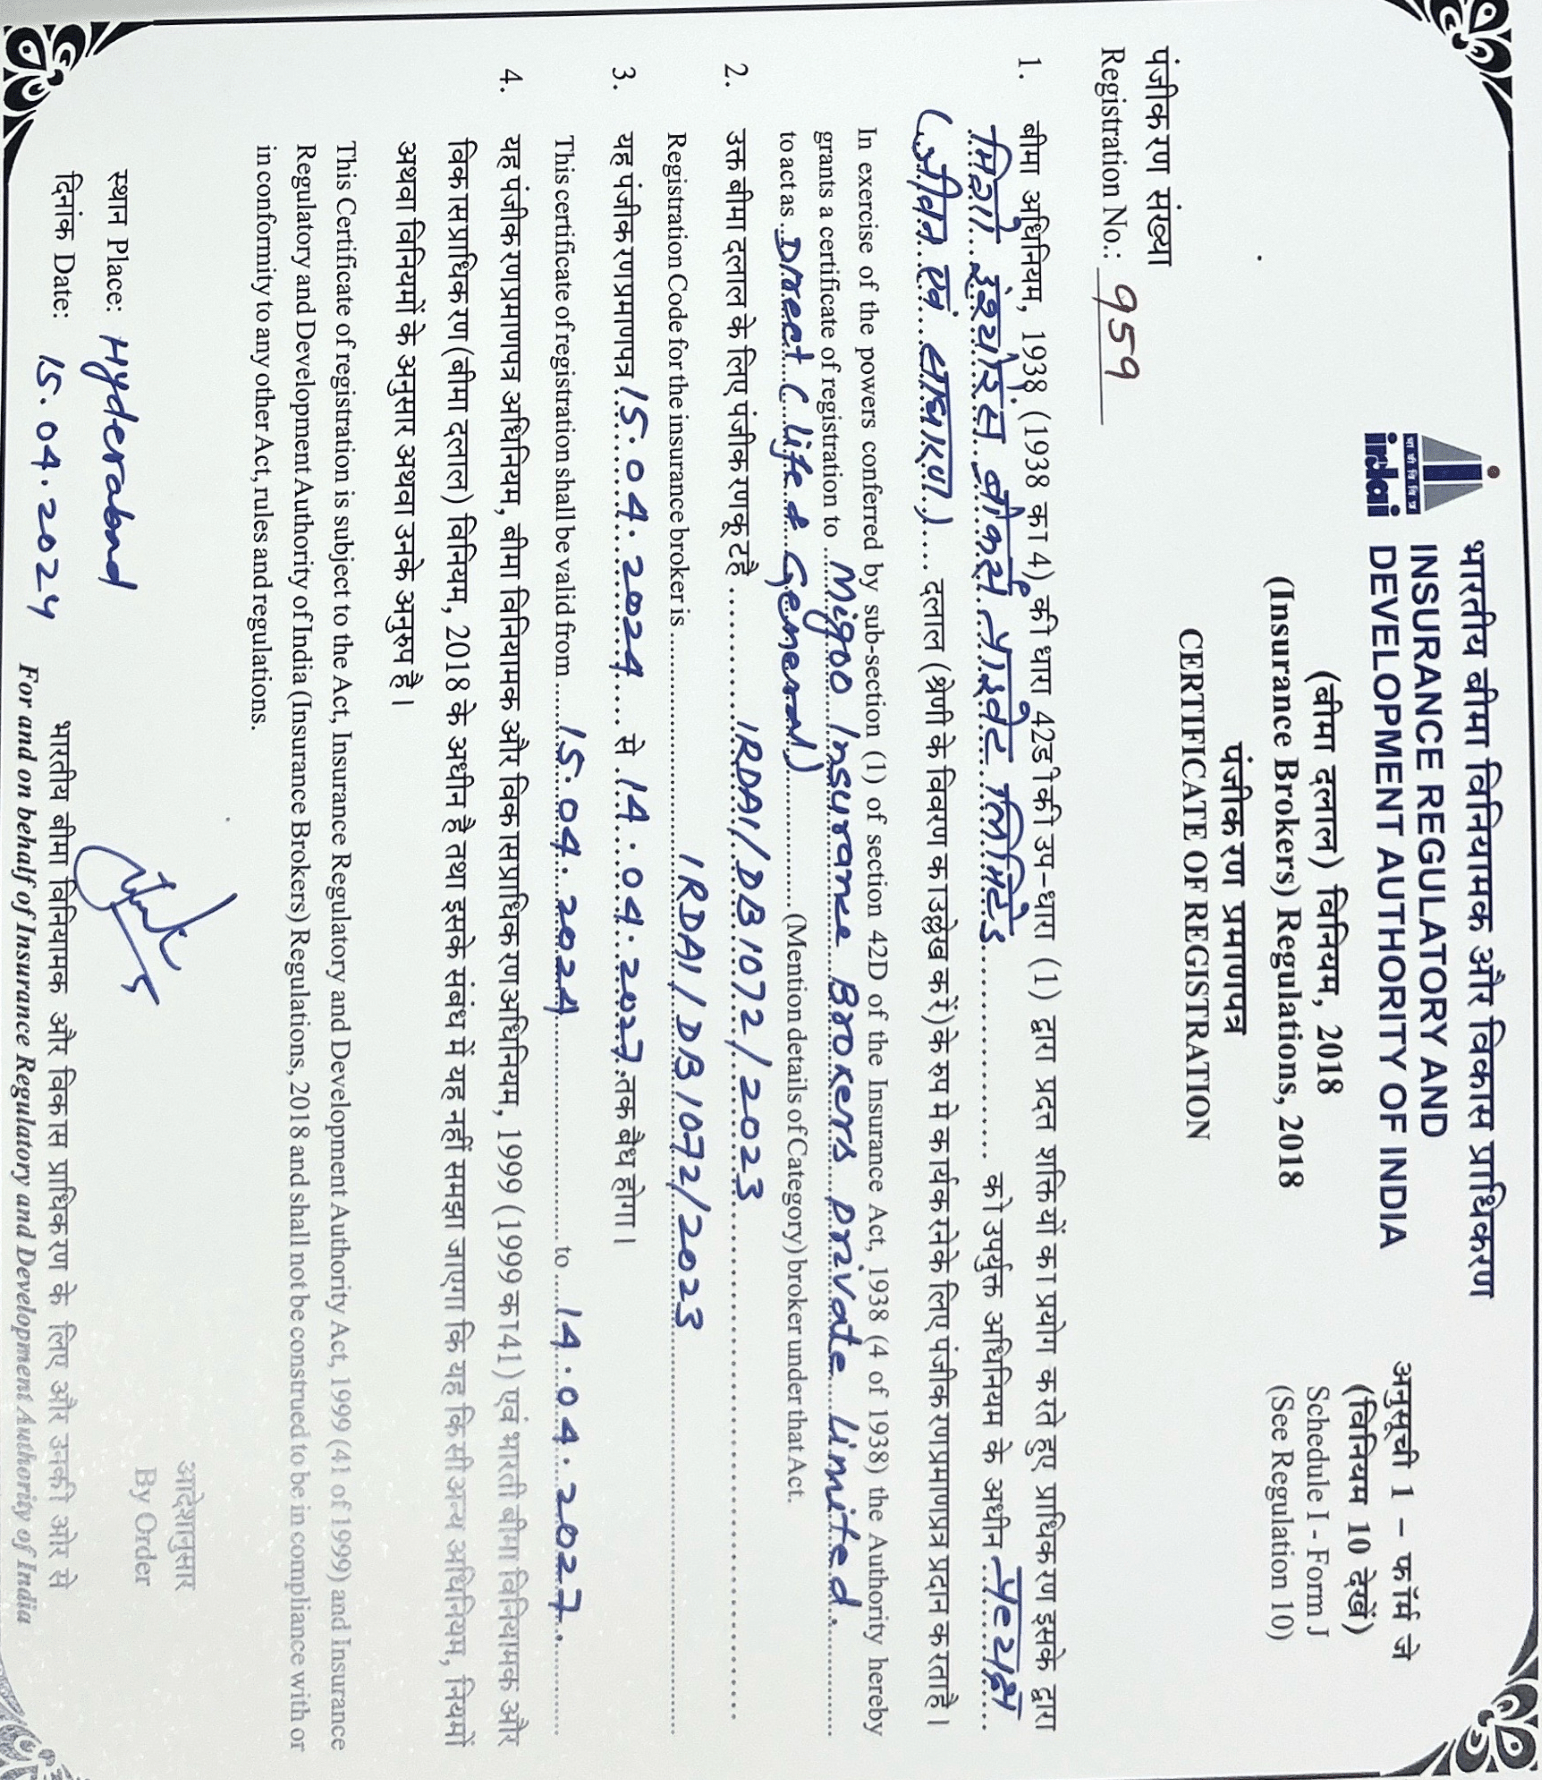 भारतीय बीमा विनियामक और विकास प्राधिकरण
INSURANCE REGULATORY AND
DEVELOPMENT AUTHORITY OF INDIA
irdai
अनुसूची 1 - फॉर्म जे
(विनियम 10 देखें)
Schedule I - Form J
(See Regulation 10)
(बीमा दलाल) विनियम, 2018
(Insurance Brokers) Regulations, 2018
पंजीकरण प्रमाणपत्र
CERTIFICATE OF REGISTRATION
पंजीकरण संख्या
Registration No.: 959
1. बीमा अधिनियम, 1938 (1938 का 4) की धारा 42डी की उप-धारा (1) द्वारा प्रदत्त शक्तियों का प्रयोग करते हुए प्राधिकरण इसके द्वारा
मिगो इंश्योरेंस ब्रोकर्स प्राइवेट लिमिटेड को उपर्युक्त अधिनियम के अधीन प्रत्यक्ष
(जीवन एवं साधारण) दलाल (श्रेणी के विवरण का उल्लेख करें) के रुप मे कार्य करने के लिए पंजीकरण प्रमाणपत्र प्रदान करता है।
In exercise of the powers conferred by sub-section (1) of section 42D of the Insurance Act, 1938 (4 of 1938) the Authority hereby
grants a certificate of registration to Migoo Insurance Brokers private Limited.
to act as Direct (life & General) (Mention details of Category) broker under that Act.
2. उक्त बीमा दलाल के लिए पंजीकरण कूट है IRDAI/DB1072/2023
Registration Code for the insurance broker is IRDAI/DB1072/2023
3. यह पंजीकरण प्रमाणपत्र 15.04.2024 से 14.04.2027 तक वैध होगा।
This certificate of registration shall be valid from 15.04.2024 to 14.04.2027.
4. यह पंजीकरण प्रमाणपत्र अधिनियम, बीमा विनियामक और विकास प्राधिकरण अधिनियम, 1999 (1999 का 41) एवं भारती बीमा विनियामक और
विकास प्राधिकरण (बीमा दलाल) विनियम, 2018 के अधीन है तथा इसके संबंध में यह नहीं समझा जाएगा कि यह किसी अन्य अधिनियम, नियमों
अथवा विनियमों के अनुसार अथवा उनके अनुरुप है।
This Certificate of registration is subject to the Act, Insurance Regulatory and Development Authority Act, 1999 (41 of 1999) and Insurance
Regulatory and Development Authority of India (Insurance Brokers) Regulations, 2018 and shall not be construed to be in compliance with or
in conformity to any other Act, rules and regulations.
आदेशानुसार
By Order
स्थान Place: Hyderabad
दिनांक Date: 15.04.2024
भारतीय बीमा विनियामक और विकास प्राधिकरण के लिए और उनकी ओर से
For and on behalf of Insurance Regulatory and Development Authority of India